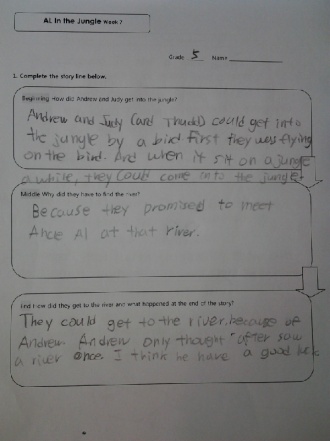 AL in the Jungle Week 7
Grade 5 Name
1. Complete the story line below.
Beginning How did Andrew and Judy get into the jungle?
Andrew and Judy (and Thudd) could get into
the jungle by a bird first they was flying
on the bird. And when it sit on a jungle
a while, they could come into the jungle.
Middle Why did they have to find the river?
Because they promised to meet
Al at that river.
End How did they get to the river and what happened at the end of the story?
They could get to the river, because of
Andrew. Andrew only thought after saw
a river once. I think he have a good